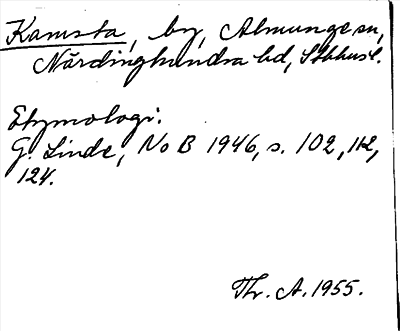 Kamsta, by, Almunge sn,
Närdinghundra hd, Sthms l.
Etymologi.
G. Linde, NoB 1946, s. 102, 112,
124.
Thr. A. 1955.